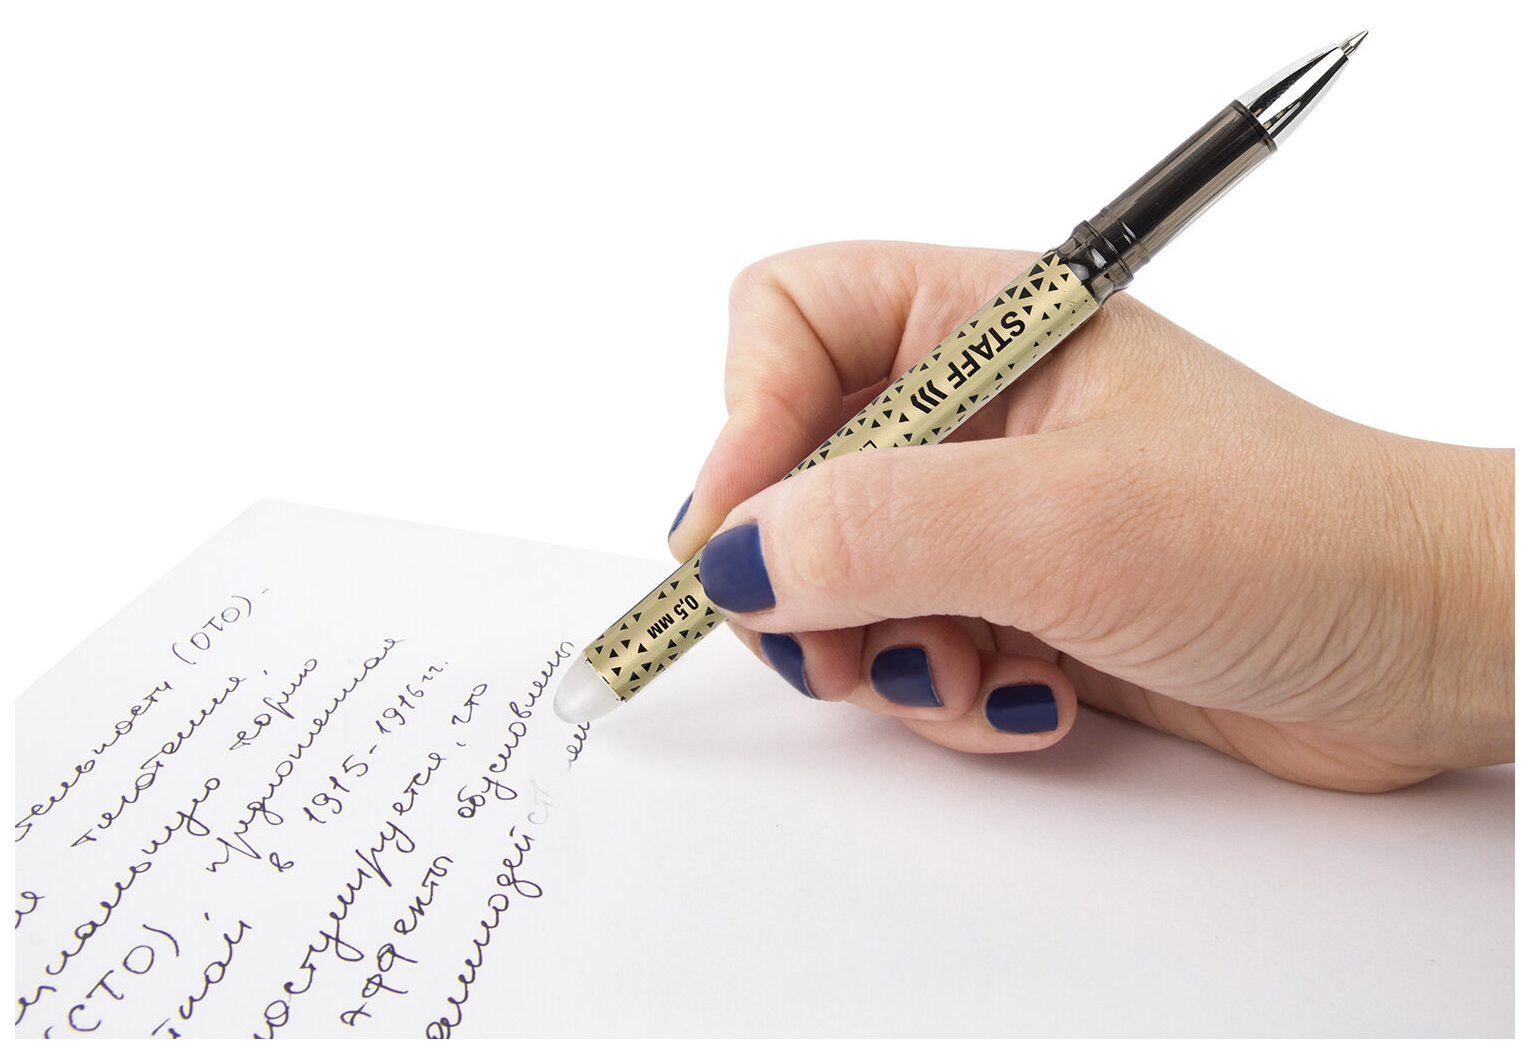 STAFF
0,5 мм
тельности (ОТО) -
тяготения,
циальную теорию
(СТО), предложенная
тной в 1915-1916 гг.
постулируется, что
эффекты обусловлены
аимодейст